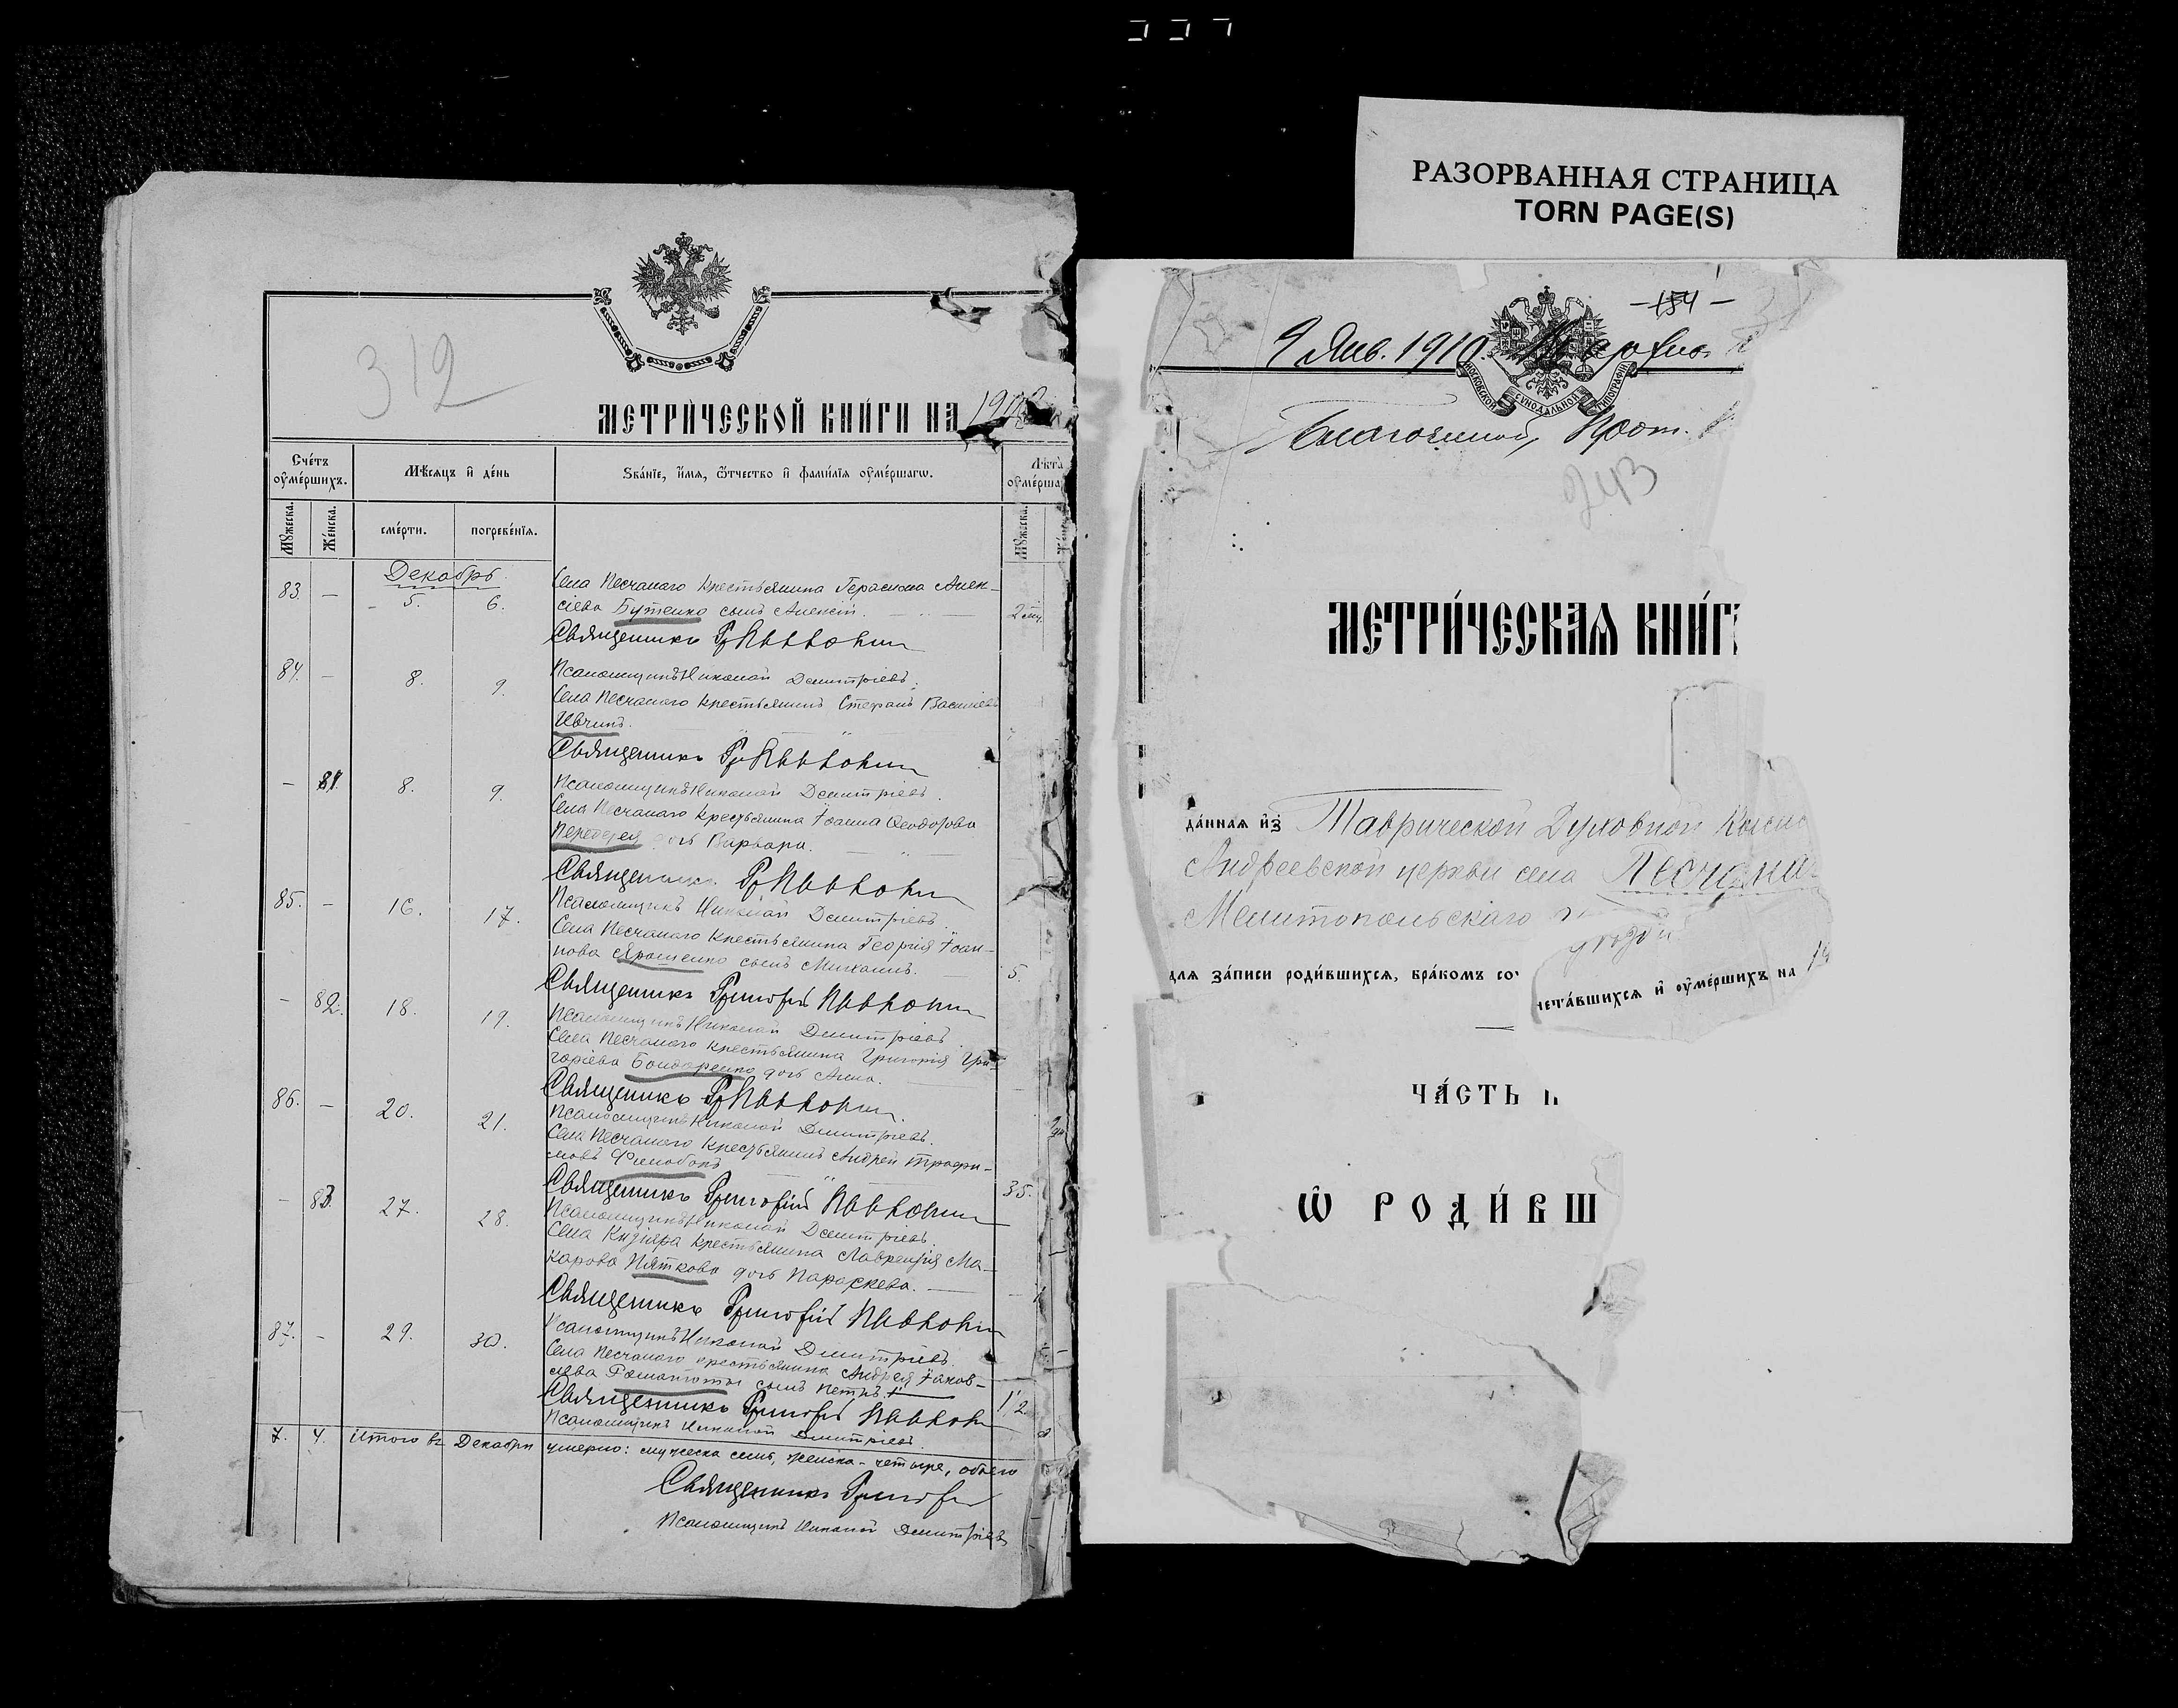 РАЗОРВАННАЯ СТРАНИЦА
TORN PAGE(S)
312
МЕТРИ́ЧЕСКОЙ КНИ́ГИ НА
Сче́тъ ᲂу҆ме́ршихъ.
Мѣ́сѧцъ и҆ де́нь
Зва́нїе, и҆́мѧ, ѻ҆́тчество и҆ фами́лїѧ ᲂу҆ме́ршагѡ.
Лѣ́та ᲂу҆ме́рша
Мꙋ́жеска.
Же́нска.
сме́рти.
погребе́нїѧ.
Мꙋ́жеска.
Декабрь.
83. — 5. 6. Села Песчанаго крестьянина Герасима Алек-
сіева Бутенко сынъ Алексій. 2 мц.
Священникъ Гр Павловскій
Псаломщикъ Николай Димитріевъ.
84. — 8. 9. Села Песчанаго крестьянинъ Стефанъ Васильевъ
Ивчинъ.
Священникъ Гр Павловскій
Псаломщикъ Николай Димитріевъ.
— 81. 8. 9. Села Песчанаго крестьянина Іоанна Ѳеодорова
дочь Варвара.
Священникъ Гр Павловскій
Псаломщикъ Николай Димитріевъ.
85. — 16. 17. Села Песчанаго крестьянина Георгія Іоан-
нова Ярошенко сынъ Михаилъ. 5.
Священникъ Григорій Павловскій
Псаломщикъ Николай Димитріевъ.
— 82. 18. 19. Села Песчанаго крестьянина Григорія Гри-
горіева Бондаренко дочь Анна.
Священникъ Гр Павловскій
Псаломщикъ Николай Димитріевъ.
86. — 20. 21. Села Песчанаго крестьянинъ Андрей Трофи-
мовъ 35.
Священникъ Григорій Павловскій
Псаломщикъ Николай Димитріевъ.
— 83. 27. 28. Села Кизіяра крестьянина Лаврентія Ма-
карова Пяткова дочь Параскева.
Священникъ Григорій Павловскій
Псаломщикъ Николай Димитріевъ.
87. — 29. 30. Села Песчанаго крестьянина Андрея Іаков-
лева сынъ Петръ. 1/2
Священникъ Григорій Павловскій
Псаломщикъ Николай Димитріевъ.
7. 4. Итого въ Декабрѣ умерло: мужеска семь, женска - четыре, обоего
Священникъ Григорій
Псаломщикъ Николай Димитріевъ
-154-
9 Янв. 1910.
МОСКОВСКОЙ СѴНОДАЛЬНОЙ ТИПОГРАФІИ
Благочинный, Прот.
243
МЕТРИ́ЧЕСКАѦ КНИ́Г
да́ннаѧ и҆з̾ Таврической Духовной Консис
Андреевской церкви села Песчана
Мелитопольскаго
уѣзда
для за́писи роди́вшихсѧ, бра́комъ со
чета́вшихсѧ и҆ ᲂу҆ме́ршихъ на 19
ЧА́СТЬ П
Ѡ҆ РОДИ́ВШ